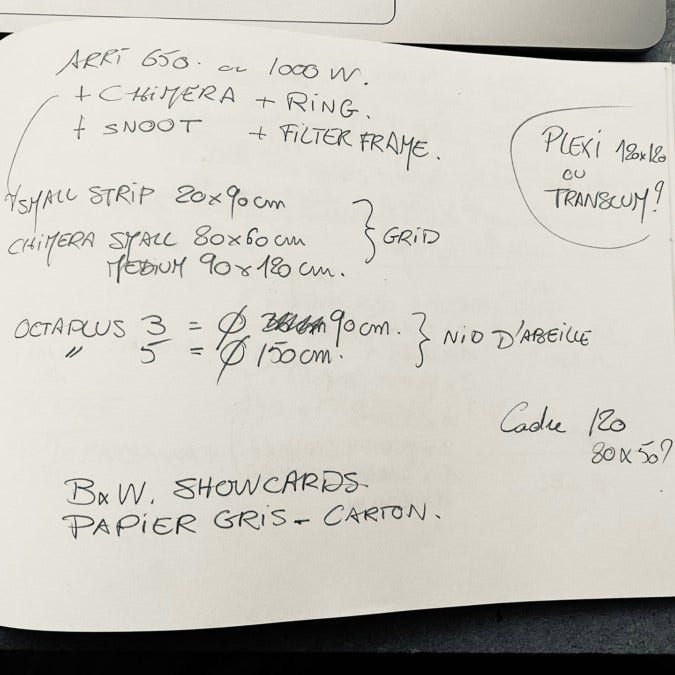 ARRI 650. ou 1000 W.
+ CHIMERA + RING.
+ SNOOT + FILTER FRAME.
PLEXI 120x120
OU
TRANSLUM?
SMALL STRIP 20x90cm
CHIMERA SMALL 80x60cm
MEDIUM 90x120cm.
} GRID
OCTAPLUS 3 = Ø 90cm.
" 5 = Ø 150cm.
} NID D'ABEILLE
Cadre 120
80x50?
B&W. SHOWCARDS
PAPIER GRIS - CARTON.